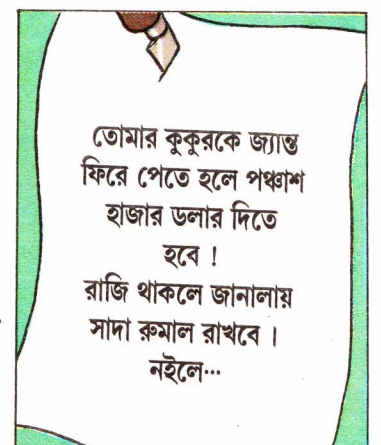 তোমার কুকুরকে জ্যান্ত
ফিরে পেতে হলে পঞ্চাশ
হাজার ডলার দিতে
হবে !
রাজি থাকলে জানালায়
সাদা রুমাল রাখবে ।
নইলে…